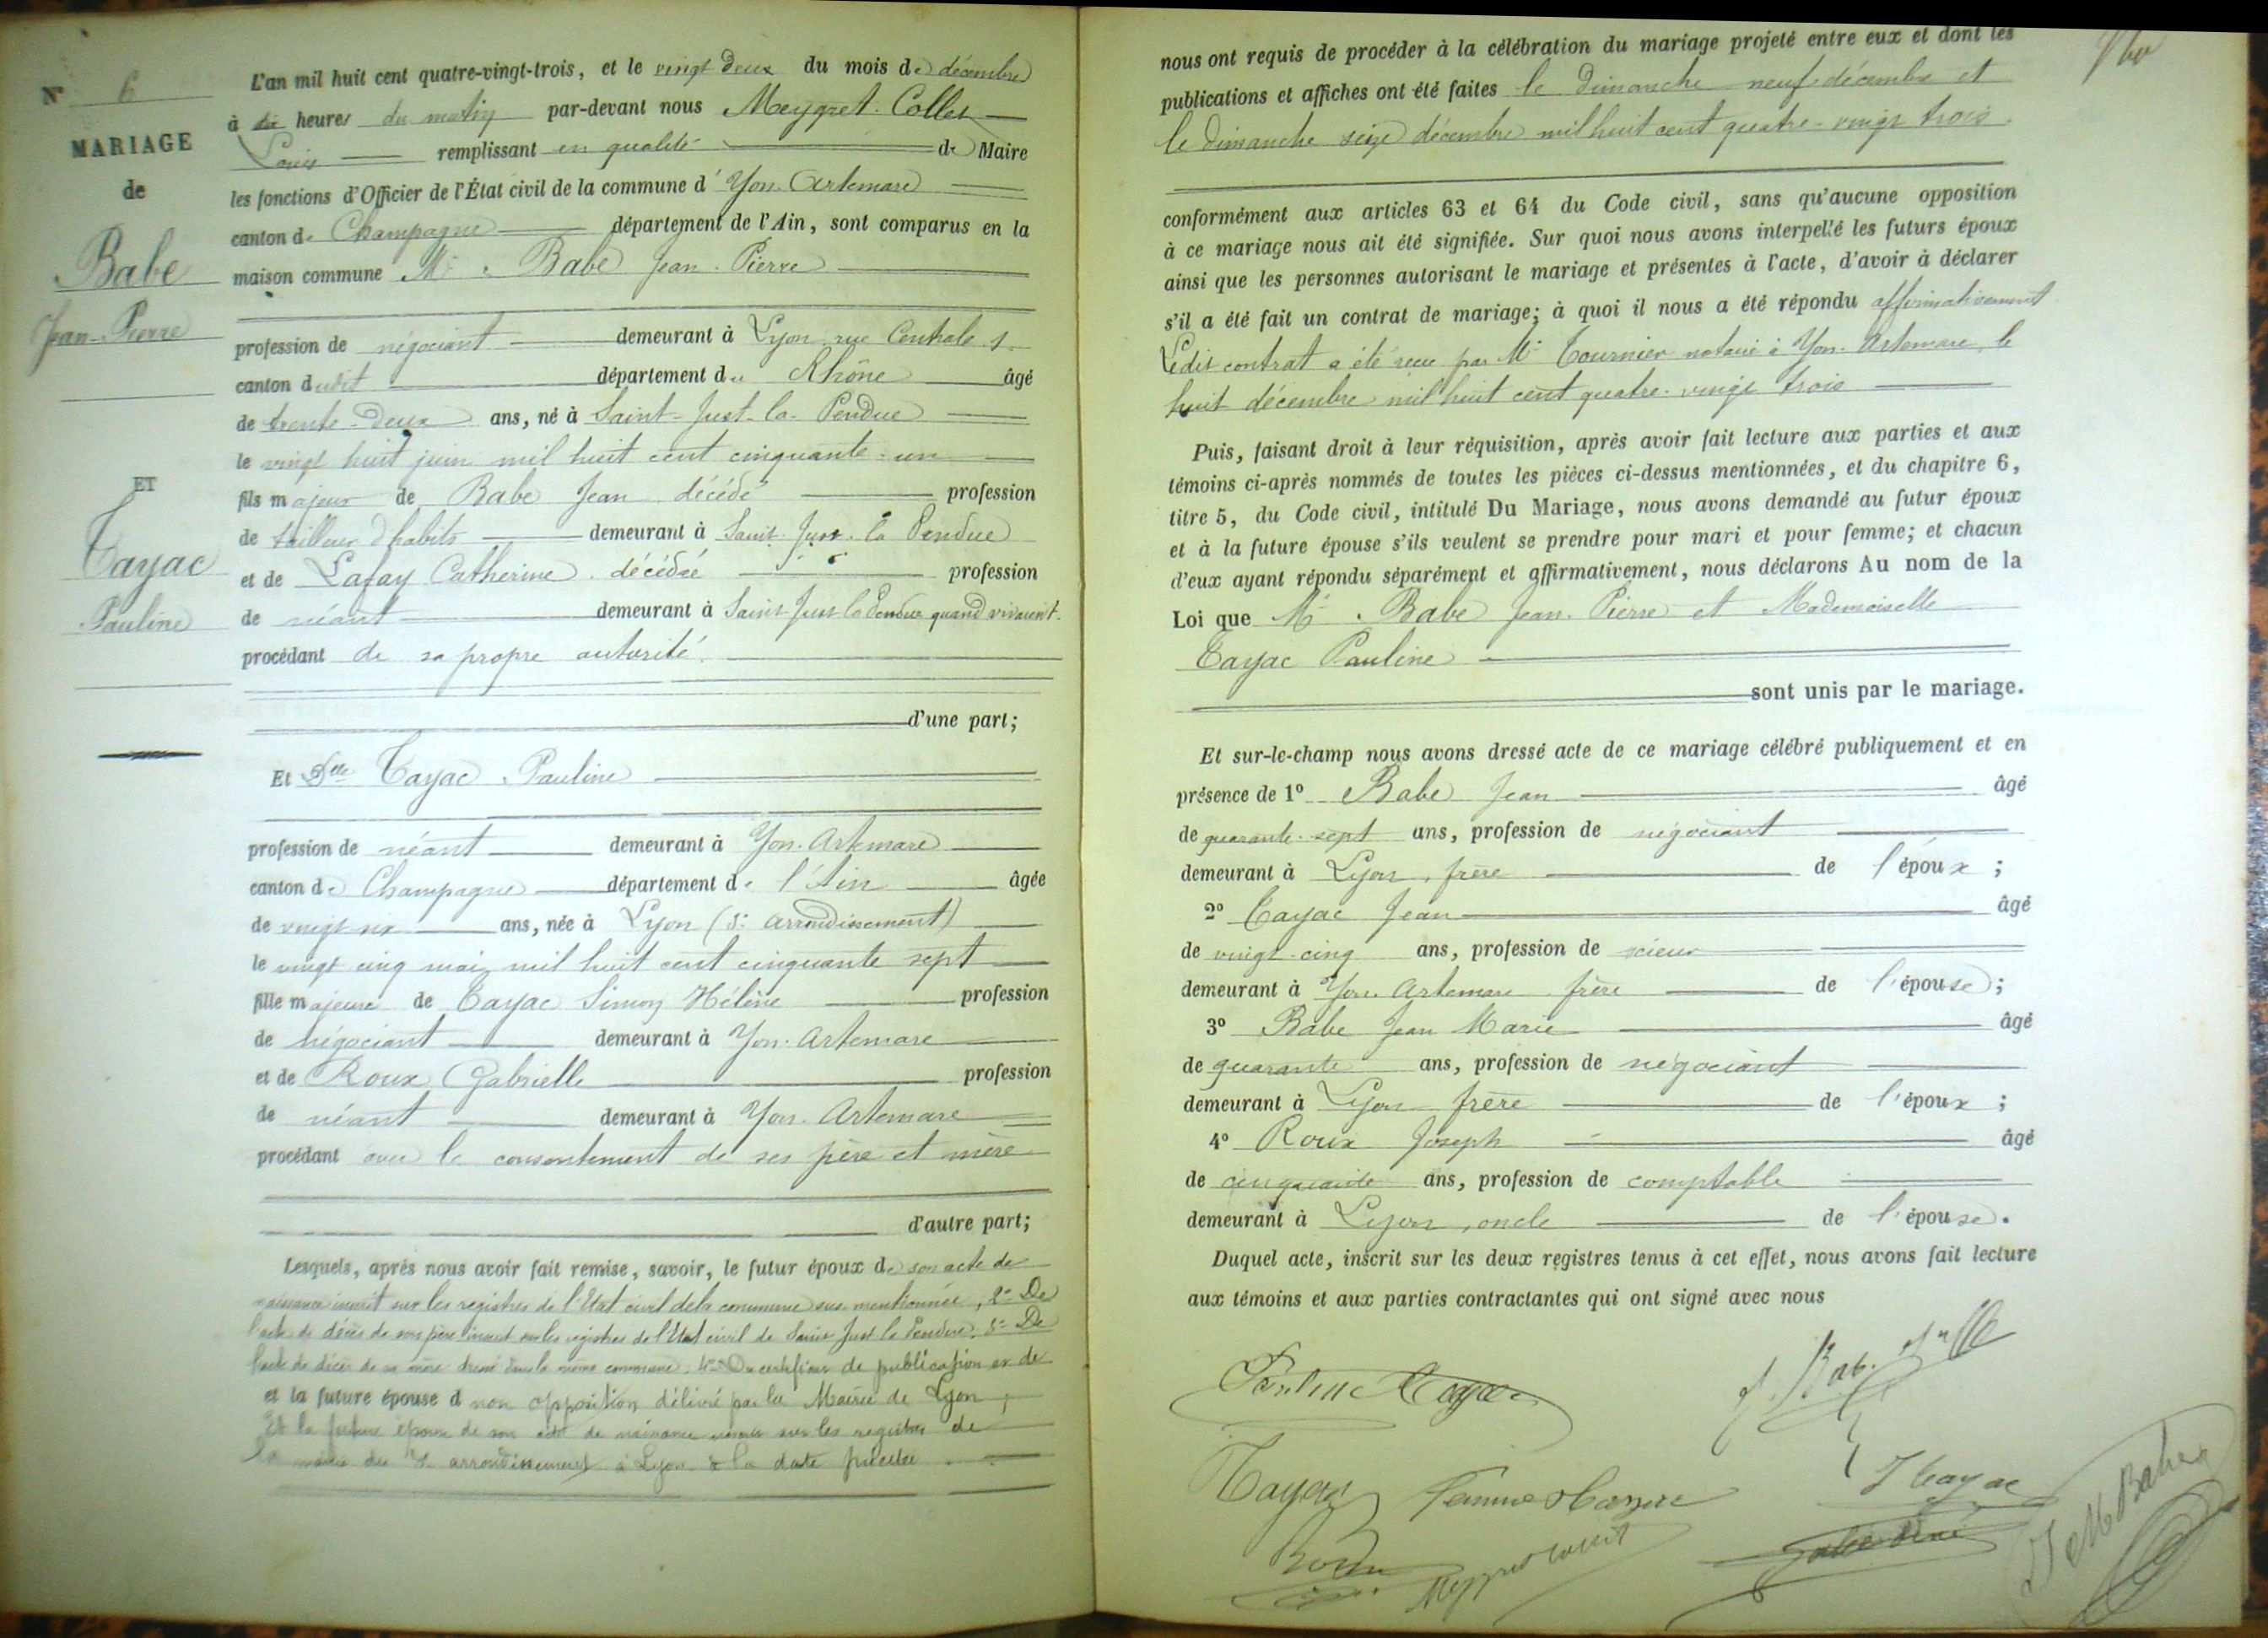 N° 6
MARIAGE
de
Babe
Jean-Pierre
ET
Tayac
Pauline
L'an mil huit cent quatre-vingt-trois, et le vingt deux du mois de décembre
à dix heures du matin par-devant nous Meygret-Collet
Louis remplissant en qualité de Maire
les fonctions d'Officier de l'État civil de la commune d'Yon-Artemare
canton de Champagne département de l'Ain, sont comparus en la
maison commune Mr. Babe Jean-Pierre
profession de négociant demeurant à Lyon rue Centrale 1
canton dudit département du Rhône âgé
de trente-deux ans, né à Saint-Just-la-Pendue
le vingt huit juin mil huit cent cinquante-un
fils majeur de Babe Jean décédé profession
de tailleur d'habits demeurant à Saint-Just-la Pendue
et de Lafay Catherine décédée profession
de néant demeurant à Saint Just la Pendue quand vivaient.
procédant de sa propre autorité.
d'une part;
Et Dlle Tayac Pauline
profession de néant demeurant à Yon-Artemare
canton de Champagne département de l'Ain âgée
de vingt six ans, née à Lyon ( arrondissement)
le vingt cinq mai mil huit cent cinquante sept
fille majeure de Tayac Simon Hélène profession
de négociant demeurant à Yon-Artemare
et de Roux Gabrielle profession
de néant demeurant à Yon-Artemare
procédant avec le consentement de ses père et mère
d'autre part;
Lesquels, après nous avoir fait remise, savoir, le futur époux de son acte de
naissance inscrit sur les registres de l'Etat civil de la commune sus-mentionnée, 2° De
l'acte de décès de son père inscrit sur les registres de l'Etat civil de Saint Just la Pendue. 3° De
l'acte de décès de sa mère dressé dans la même commune. 4° Du certificat de publication et de
et la future épouse d non opposition délivré par la Mairie de Lyon,
Et la future épouse de son acte de naissance sur les registres de
la mairie du arrondissement à Lyon à la date précitée
nous ont requis de procéder à la célébration du mariage projeté entre eux et dont les
publications et affiches ont été faites le Dimanche neuf décembre et
le Dimanche seize décembre mil huit cent quatre-vingt trois.
conformément aux articles 63 et 64 du Code civil, sans qu'aucune opposition
à ce mariage nous ait été signifiée. Sur quoi nous avons interpellé les futurs époux
ainsi que les personnes autorisant le mariage et présentes à l'acte, d'avoir à déclarer
s'il a été fait un contrat de mariage; à quoi il nous a été répondu affirmativement
Ledit contrat a été reçu par Me Tournier notaire à Yon-Artemare le
huit décembre mil huit cent quatre-vingt trois
Puis, faisant droit à leur réquisition, après avoir fait lecture aux parties et aux
témoins ci-après nommés de toutes les pièces ci-dessus mentionnées, et du chapitre 6,
titre 5, du Code civil, intitulé Du Mariage, nous avons demandé au futur époux
et à la future épouse s'ils veulent se prendre pour mari et pour femme; et chacun
d'eux ayant répondu séparément et affirmativement, nous déclarons Au nom de la
Loi que Mr. Babe Jean-Pierre et Mademoiselle
Tayac Pauline
sont unis par le mariage.
Et sur-le-champ nous avons dressé acte de ce mariage célébré publiquement et en
présence de 1° Babe Jean âgé
de quarante-sept ans, profession de négociant
demeurant à Lyon, frère de l'époux;
2° Tayac Jean âgé
de vingt-cinq ans, profession de scieur
demeurant à Yon-Artemare frère de l'épouse;
3° Babe Jean Marie âgé
de quarante ans, profession de négociant
demeurant à Lyon frère de l'époux;
4° Roux Joseph âgé
de cinquante ans, profession de comptable
demeurant à Lyon, oncle de l'épouse.
Duquel acte, inscrit sur les deux registres tenus à cet effet, nous avons fait lecture
aux témoins et aux parties contractantes qui ont signé avec nous
Pauline Tayac
Tayac
J Tayac
J M Babe
Roux
Meygret Collet